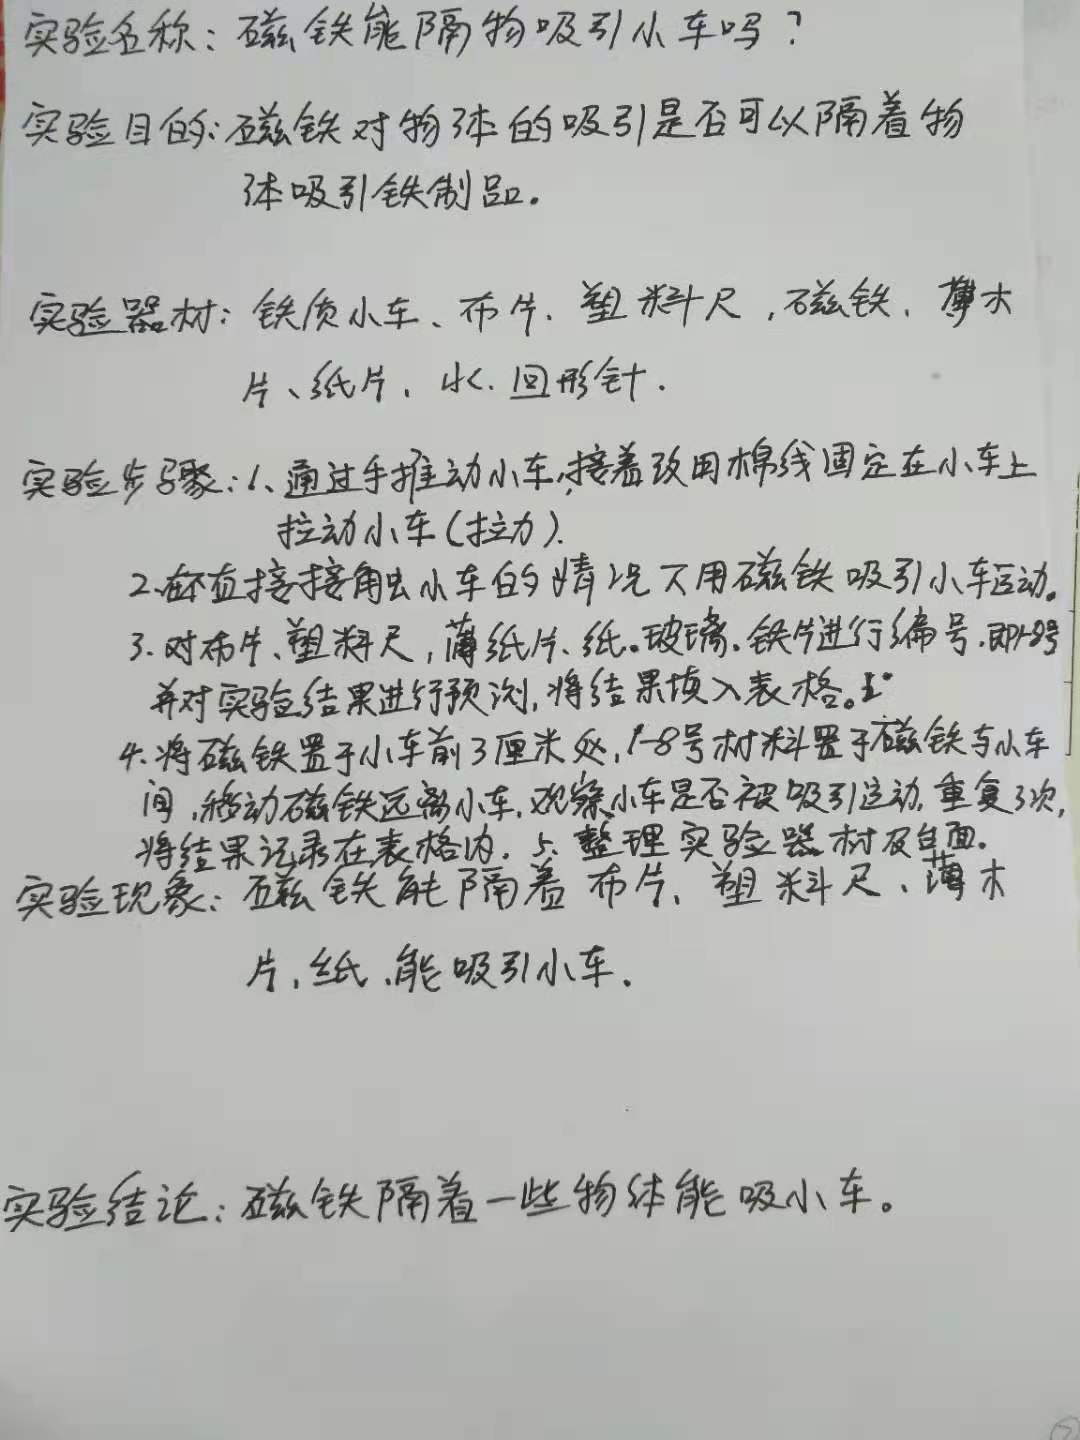 实验名称：磁铁能隔物吸引小车吗？
实验目的：磁铁对物体的吸引是否可以隔着物
体吸引铁制品。
实验器材：铁质小车、布片、塑料尺，磁铁、薄木
片、纸片、水、回形针.
实验步骤：1、通过手推动小车，接着改用棉线固定在小车上
拉动小车（拉力）.
2、在不直接接触小车的情况下用磁铁吸引小车运动。
3、对布片、塑料尺，薄纸片、纸。玻璃。铁片进行编号.即1-8号
并对实验结果进行预测，将结果填入表格。
4、将磁铁置于小车前3厘米处，1-8号材料置于磁铁与小车
间，移动磁铁远离小车，观察小车是否被吸引运动，重复3次，
将结果记录在表格内. 5、整理实验器材及台面。
实验现象：磁铁能隔着布片、塑料尺、薄木
片，纸、能吸引小车.
实验结论：磁铁隔着一些物体能吸小车。